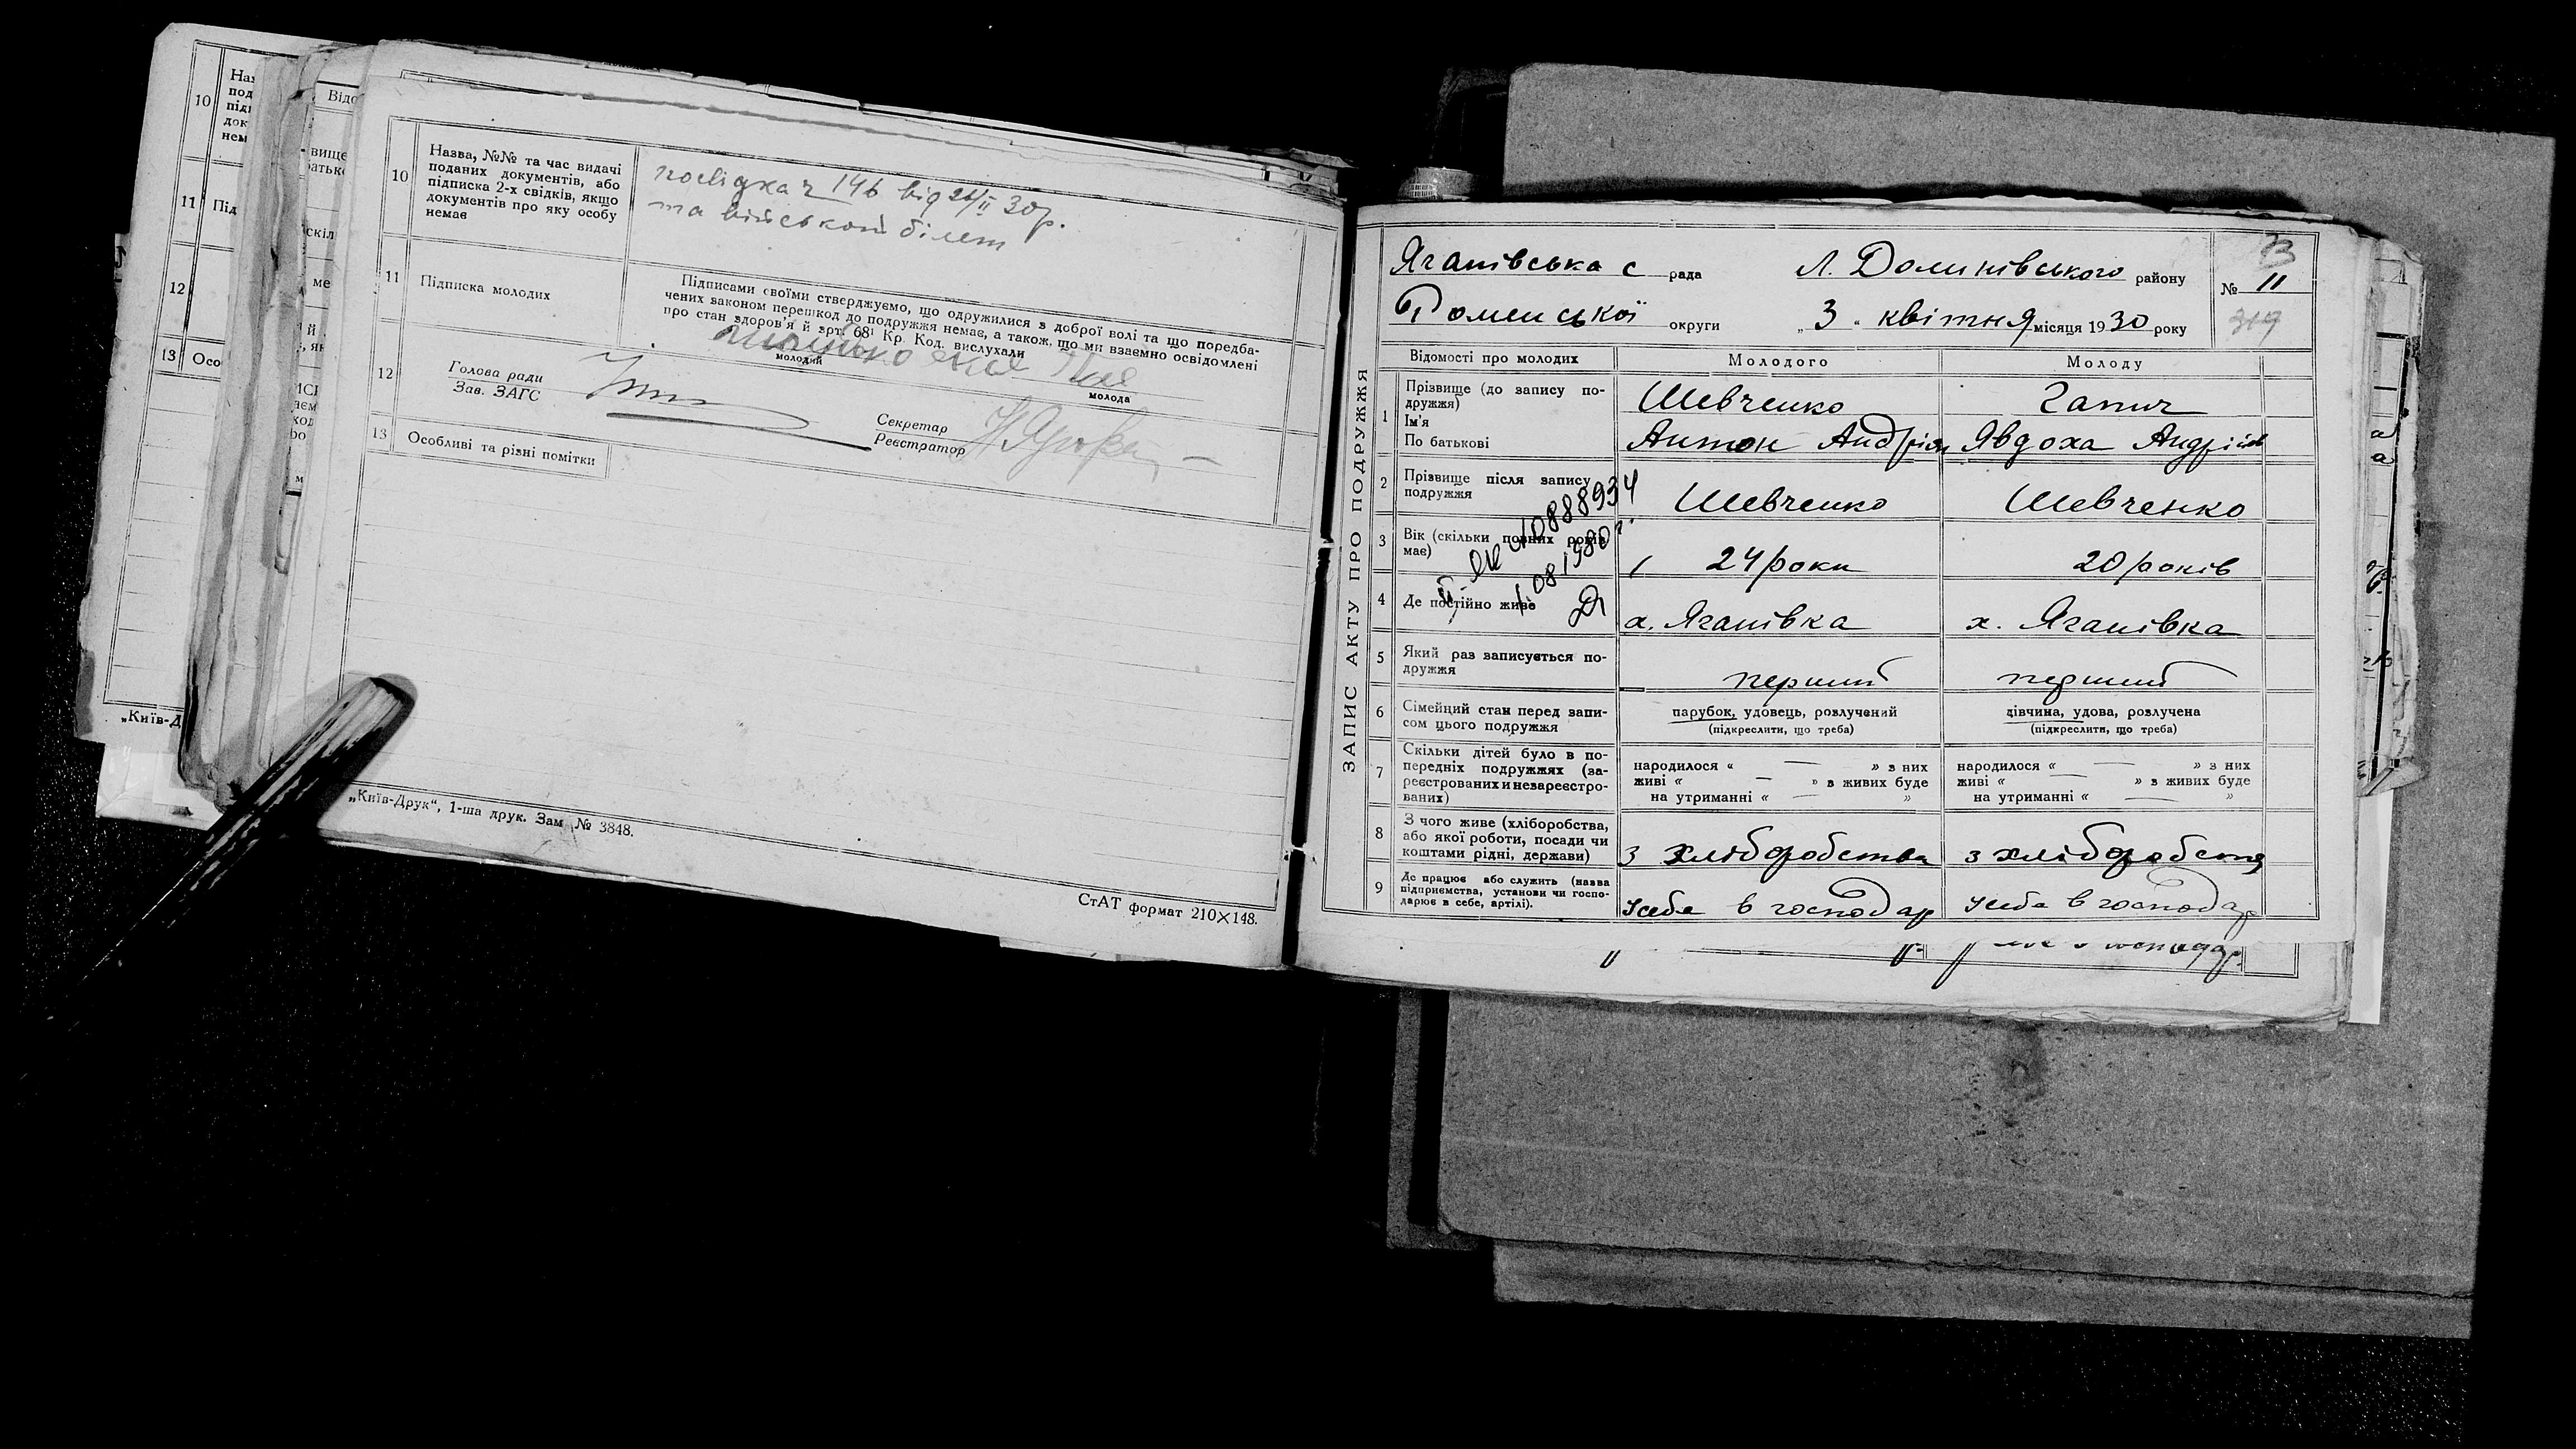 10
11 Під
12
13 Осо
„Київ-Д
10 Назва, №№ та час видачі
поданих документів, або
підписка 2-х свідків, якщо
документів про яку особу
немає
посвідка ч 146 від 26/II 30р.
та військовий білет
11 Підписка молодих
Підписами своїми стверджуємо, що одружилися з доброї волі та що поредба-
чених законом перешкод до подружжя немає, а також, що ми взаємно освідомлені
про стан здоров'я й зрт. 68¹ Кр. Код. вислухали
молодий
молода
12 Голова ради
Зав. ЗАГС
Секретар
Реєстратор
13 Особливі та різні помітки
„Київ-Друк“, 1-ша друк. Зам № 3848.
СтАТ формат 210×148.
ЗАПИС АКТУ ПРО ПОДРУЖЖЯ
Яганівська с рада Л. Долинівського району
Роменської округи „3“ квітня місяця 1930 року
№ 11
319
Відомості про молодих Молодого Молоду
1 Прізвище (до запису по-
дружжя)
Ім'я
По батькові
Шевченко Гапич
Антон Андрієв Явдоха Андріїв
2 Прізвище після запису
подружжя
Шевченко Шевченко
3 Вік (скільки повних років
має)
24 роки 20 років
4 Де постійно живе
х. Яганівка х. Яганівка
№ 0888934
1 08 1980 г.
5 Який раз записується по-
дружжя
перший перший
6 Сімейций стан перед запи-
сом цього подружжя
парубок, удовець, розлучений дівчина, удова, розлучена
(підкреслити, що треба) (підкреслити, що треба)
7 Скільки дітей було в по-
передніх подружжях (за-
реєстрованих и незареєстро-
ваних)
народилося « — » з них народилося « — » з них
живі « — » з живих буде живі « — » з живих буде
на утриманні « — » на утриманні « — »
8 З чого живе (хліборобства,
або якої роботи, посади чи
коштами рідні, держави)
з хліборобства з хліборобства
9 Де працює або служить (назва
підприємства, установи чи госпо-
дарює в себе, артілі).
усебе в господар усебе в господар